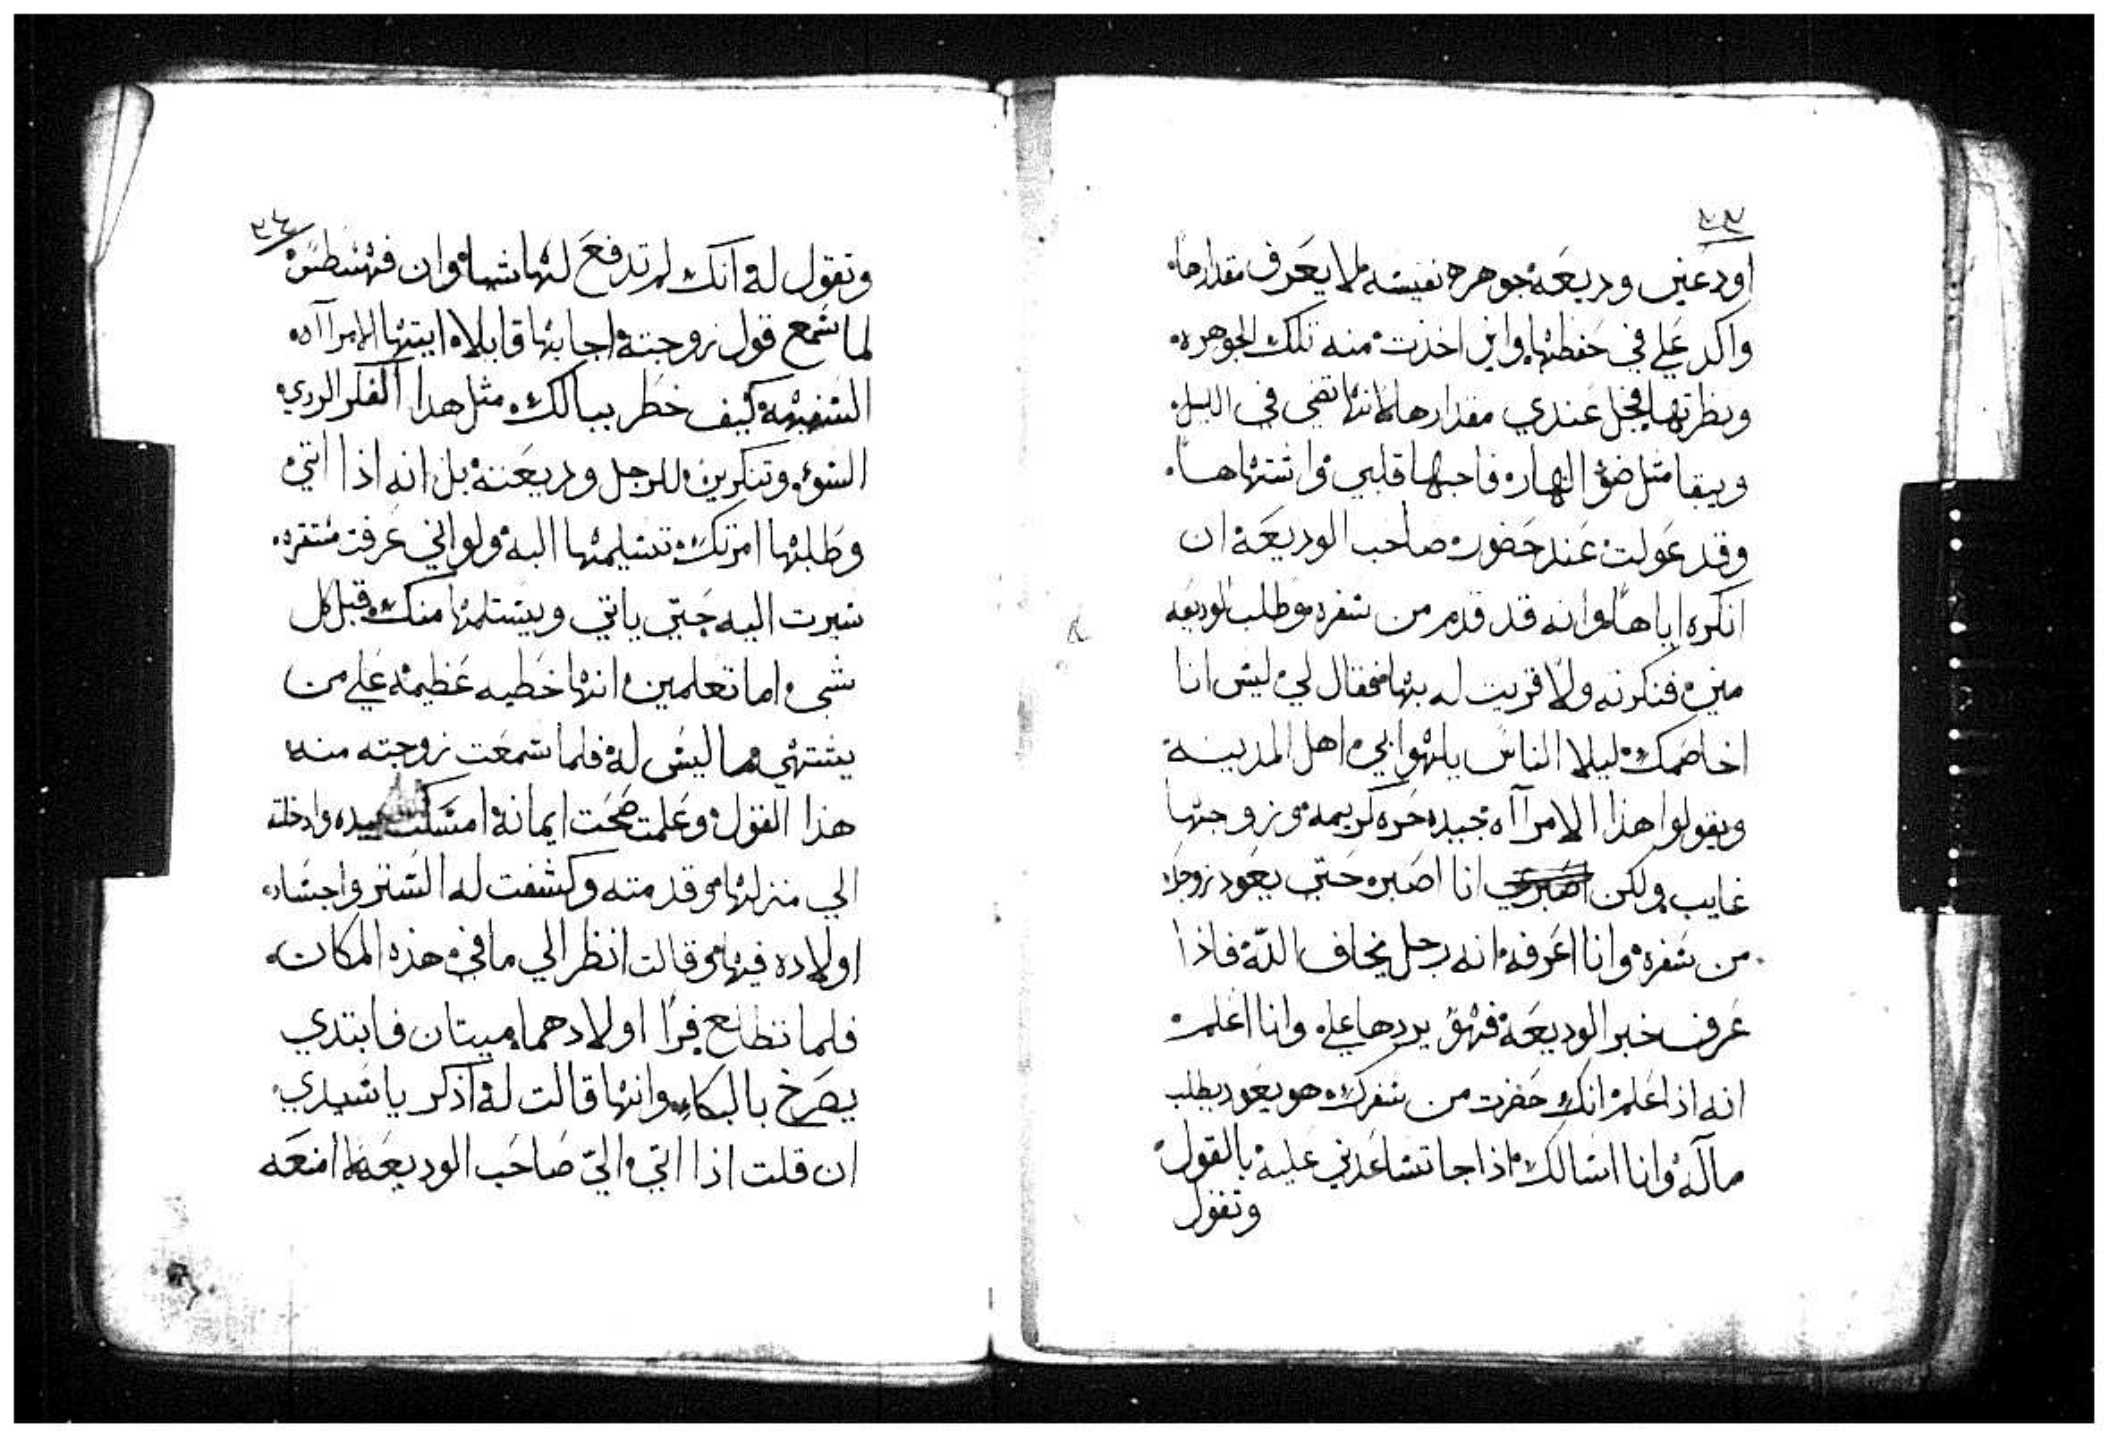 ٢٣
اودعني وديعه جوهره نفيسه لا يعرف مقدارها
واكد علي في حفظها واين اخذت منه تلك الجوهره
ونظرتها فجل عندي مقدارها لانها تضي في الليل
ويبقا مثل ضؤ النهار فاحبها قلبي واشتهاها
وقد عولت عند حضور صاحب الوديعة ان
انكره اياها وانه قد قدم من سفره وطلب الوديعه
مني فنكرته ولا قريت له بها فقال لي ليس انا
اخاصمك ليلا الناس يلهوا بي اهل المدينة
ويقولوا هذا الامراآه جيده حره كريمه وزوجها
غايب ولكن انا اصبر حتي يعود زوجك
من سفره وانا اعرفه انه رجل يخاف اللّه فاذا
عرف خبر الوديعة فهو يردها علي وانا اعلم
انه اذا علم انك حضرت من سفرك هو يعود يطلب
ماله وانا اسالك اذا جا تساعدني عليه بالقول
وتقول
٢٤
وتقول له انك لم تدفع لها شيا وان
لما سمع قول زوجته اجابها قايلا ايتها الامراآه
السفيهة كيف خطر ببالك مثل هدا الفكر الردي
السوء وتنكرين للرجل وديعته بل انه اذا اتي
وطلبها امرتك تسليمها اليه ولو اني عرفت مستقره
سيرت اليه حتي ياتي ويستلمها منك قبل كل
شي اما تعلمين انها خطيه عظيمة علي من
يشتهي ما ليس له فلما سمعت زوجته منه
هذا القول وعلمت صحت ايمانه امسكت بيده وادخلته
الي منزلها وقدمته وكشفت له الستر واجساد
اولاده فيها وقالت انظر الي ما في هذه المكان
فلما تطلع فرا اولادهما ميتان فابتدي
يصرخ بالبكا وانها قالت له اذكر يا سيدي
ان قلت اذا اتي اليّ صاحب الوديعة امنعه